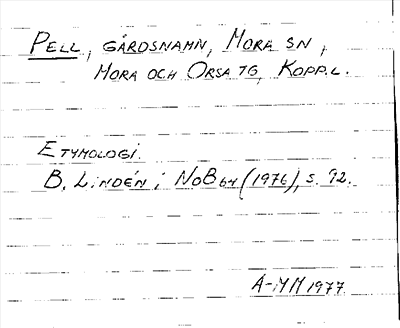 PELL, GÅRDSNAMN, MORA SN,
MORA OCH ORSA TG, KOPP.L.
ETYMOLOGI.
B. LINDÉN i NoB 64 (1976), s. 92.
A-MM 1977